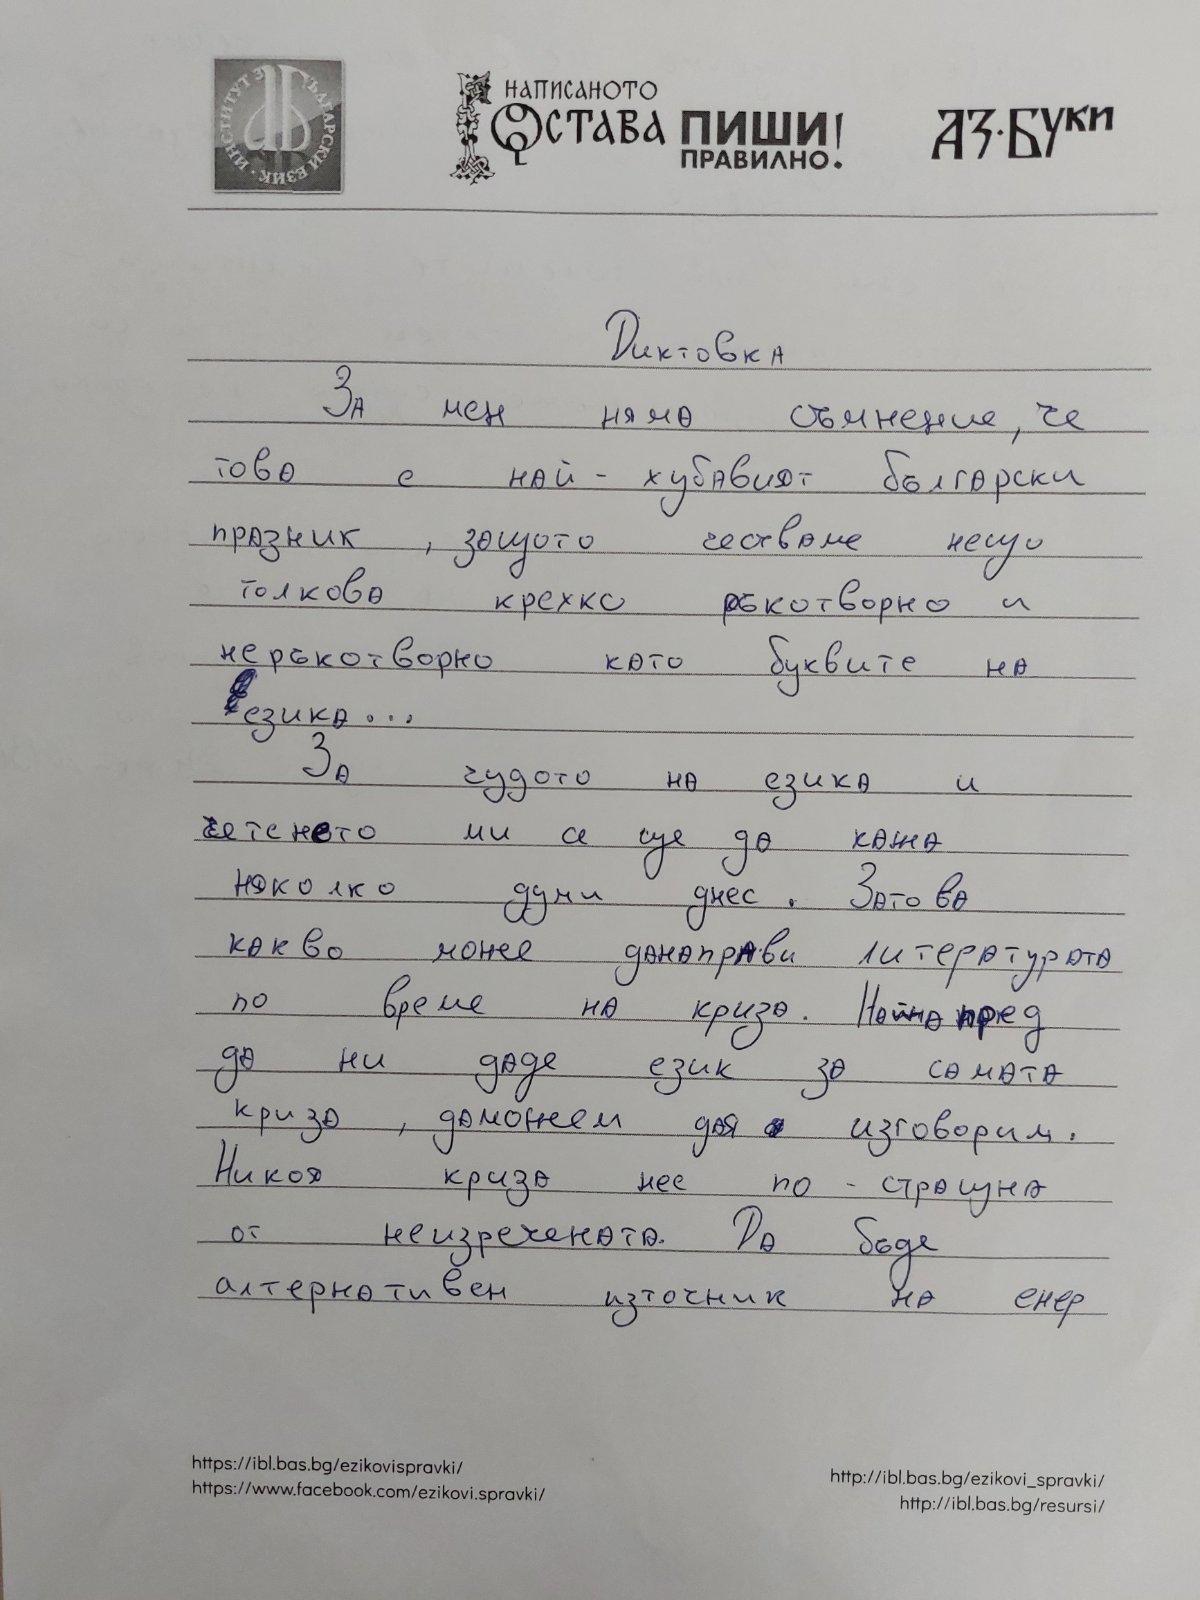 ИНСТИТУТ ЗА БЪЛГАРСКИ ЕЗИК
НАПИСАНОТО
ОСТАВА ПИШИ
ПРАВИЛНО!
АЗ·БУКИ
Диктовка
За мен няма съмнение, че
това е най-хубавият български
празник, защото честваме нещо
толкова крехко ръкотворно и
неръкотворно като буквите на
езика...
За чудото на езика и
четенето ми се ще да кажа
няколко думи днес. Затова
какво може данаправи литературата
по време на криза. Найнапред
да ни даде език за самата
криза, даможем дая изговорим.
Никоя криза нее по-страшна
от неизречената. Да бъде
алтернативен източник на енер
https://ibl.bas.bg/ezikovispravki/
https://www.facebook.com/ezikovi.spravki/
http://ibl.bas.bg/ezikovi_spravki/
http://ibl.bas.bg/resursi/